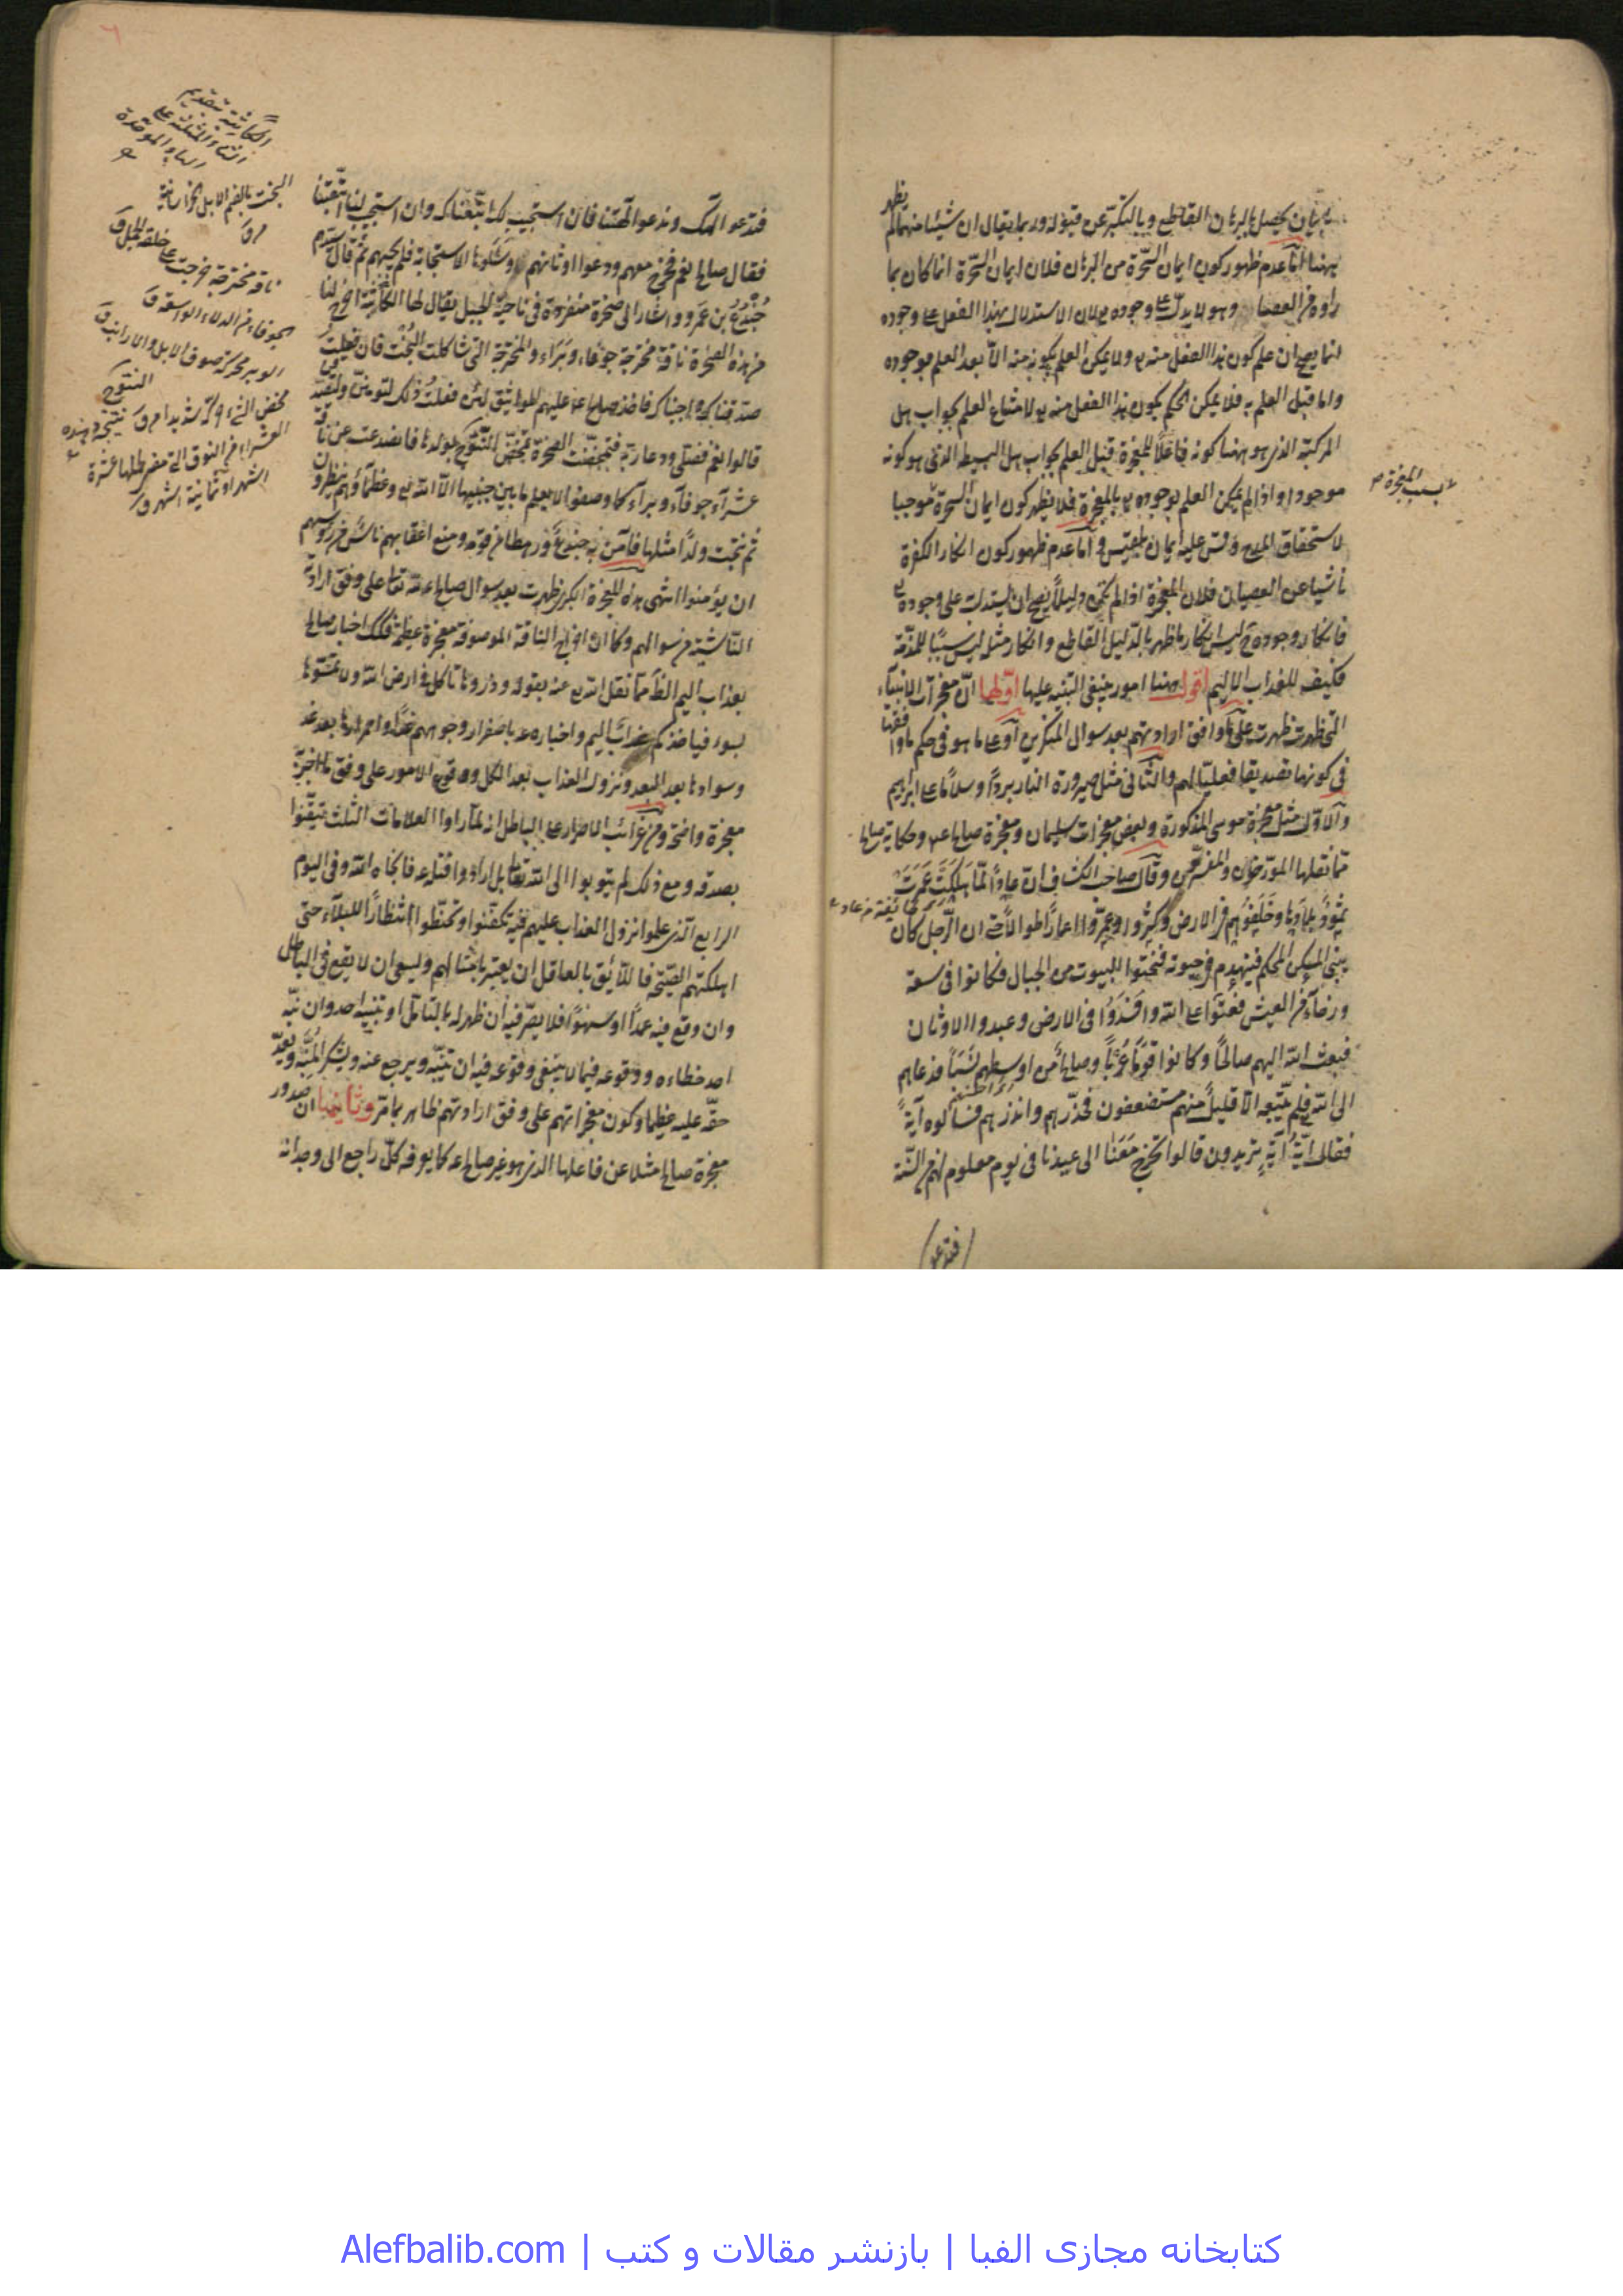 بيان يحصل بالبرهان القاطع وبالتكبر عن قبوله وربما يقال ان شيئا منهما لم يظهر
ههنا اما عدم ظهور كون ايمان السحرة من البرهان فلان ايمان السحرة انما كان بما
راوه من العصا وهو لا يدل على وجوده لان الاستدلال بهذا الفعل على وجوده
انما يصح ان علم كون هذا الفعل منه ولا يمكن العلم بكونه منه الا بعد العلم بوجوده
واما قبل العلم به فلا يمكن الحكم بكون هذا الفعل منه لامتناع العلم بجواب هل
المركبة الذى هو ههنا كونه فاعلا للمعجزة قبل العلم بجواب هل البسيط الذى هو كونه
موجودا واذا لم يمكن العلم بوجوده بالمعجزة فلا يظهر كون ايمان السحرة موجبا
بسبب المعجزة
لاستحقاق المدح وقس عليه ايمان بلقيس واما عدم ظهور كون انكار الكفرة
ناشيا عن العصيان فلان المعجزة اذا لم تكن دليلا يصح ان يستدل على وجوده
فانكار وجوده ليس انكار ما ظهر بالدليل القاطع وانكار مثله ليس سببا للمذمة
فكيف للعذاب الاليم اقول ههنا امور ينبغى التنبيه عليها اولها ان معجزات الانبياء
التى ظهرت ظهرت على وفق ارادتهم بعد سوال المنكرين او على ما هو فى حكم ما وافقها
فى كونها تصديقا فعليا لهم والثانى مثل صيرورة النار بردا وسلاما على ابراهيم
والاول مثل معجزة موسى المذكورة وبعض معجزات سليمان ومعجزة صالح وحكاية صالح
مما نقلها المورخون والمفسرون وقال صاحب الكشاف ان عادا لما هلكت عمرت
ثمود بلادها وخلفوهم فى الارض وكثروا وعمروا اعمارا طوالا حتى ان الرجل كان
يبنى المسكن المحكم فينهدم فى حيوته فنحتوا البيوت من الجبال فكانوا فى سعة
ورخاء من العيش فعتوا على الله وافسدوا فى الارض وعبدوا الاوثان
فبعث الله اليهم صالحا وكانوا قوما عربا وصالح من اوسطهم نسبا فدعاهم
الى الله فلم يتبعه الا قليل منهم مستضعفون فحذرهم وانذرهم فسألوه آية
فقال اية آية تريدون قالوا تخرج معنا الى عيدنا فى يوم معلوم لهم من السنة
فتدعو
فتدعو الهك وندعو الهتنا فان استجيب لك اتبعناك وان استجيب لنا اتبعتنا
فقال صالح نعم فخرج معهم ودعوا اوثانهم وسألوها الاستجابة فلم تجبهم ثم قال سيدهم
جندع بن عمرو واشار الى صخرة منفردة فى ناحية الجبل يقال لها الكاثبة اخرج لنا
من هذه الصخرة ناقة مخترجة جوفاء وبراء والمخترجة التى شاكلت البخت فان فعلت
صدقناك واجبناك فاخذ صالح عليهم المواثيق لئن فعلت ذلك لتومنن ولتصدقن
قالوا نعم فصلى ودعا ربه فتمخضت الصخرة تمخض النتوج بولدها فانصدعت عن ناقة
عشراء جوفاء وبراء كما وصفوا لا يعلم ما بين جنبيها الا الله وعظماؤهم ينظرون
ثم نتجت ولدا مثلها فآمن به جندع ورهط من قومه ومنع اعقابهم ناس من رؤسهم
ان يؤمنوا انتهى هذه المعجزة الكبرى ظهرت بعد سوال صالح الله تعالى على وفق ارادته
الناشية من سوالهم وكما ان اخراج الناقة الموصوفة معجزة عظيمة فكذلك اخبار صالح
بعذاب اليم الذى نقل الله عنه بقوله وذروها تاكل فى ارض الله ولا تمسوها
بسوء فياخذكم عذاب اليم واخباره باصفرار وجوههم غدا واحمرارها بعد غد
وسوادها بعد البعد ونزول العذاب بعد الكل ووقوع الامور على وفق ما اخبر به
معجزة واضحة ومن غرائب الاصرار على الباطل انهم لما راوا العلامات الثلث تيقنوا
بصدقه ومع ذلك لم يتوبوا الى الله تعالى بل ارادوا قتله فانجاه الله وفى اليوم
الرابع الذى علموا نزول العذاب عليهم فيه تكفنوا وتحنطوا انتظارا للبلاء حتى
اهلكتهم الصيحة فاللائق بالعاقل ان يعتبر بامثالهم ويسعى ان لا يقع فى الباطل
وان وقع فيه عمدا او سهوا فلا يصر فيه ان ظهر له بالتامل او بتنبيه احد وان نبه
احد خطاءه ووقوعه فيما لا ينبغى وقوعه فيه ان يتنبه ويرجع عنه ويشكر المنبه ويعد
حقه عليه عظيما وكون معجزاتهم على وفق ارادتهم ظاهر بما مر وثانيها ان صدور
معجزة صالح مثلا عن فاعلها الذى هو غير صالح كما يعرفه كل راجع الى وجدانه
الكاثبة بتقديم
الثاء المثلثة على
الباء الموحدة
البخت بالضم الابل الخراسانية
ق
ناقة مخترجة خرجت على خلقة الجمل ق
الجوفاء من الدلاء الواسعة ق
الوبر محركة صوف الابل والارانب ق
النتوج
العشراء من النوق التى مضى لحملها عشرة
اشهر او ثمانية اشهر ق
کتابخانه مجازی الفبا | بازنشر مقالات و کتب | Alefbalib.com